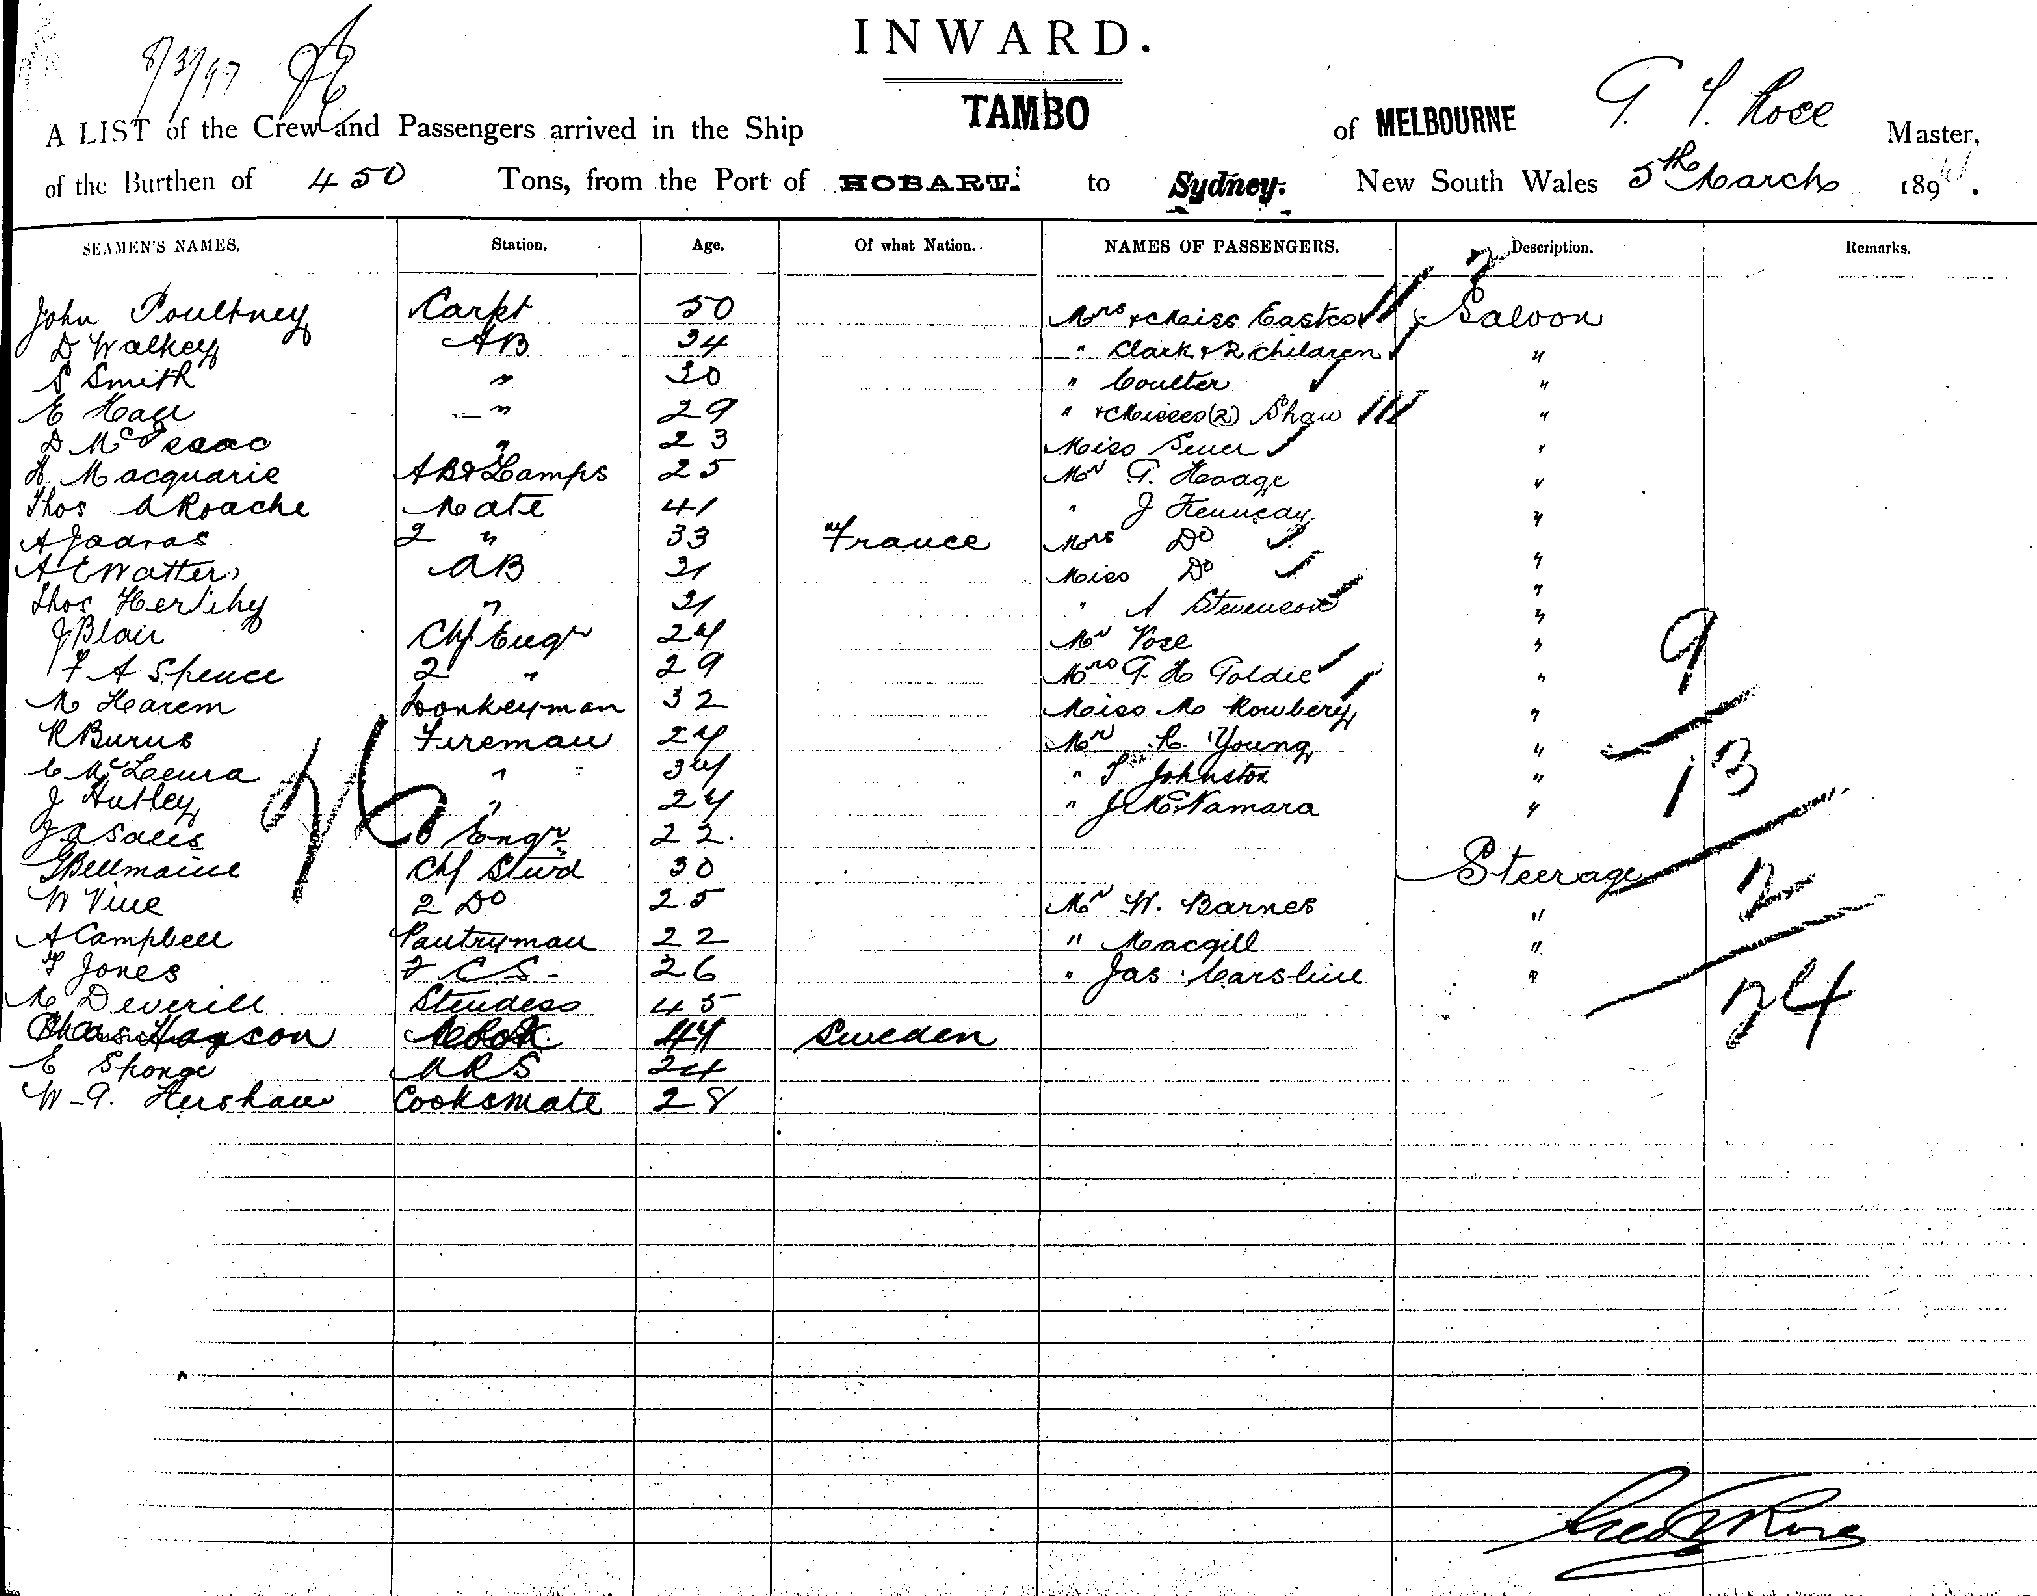 INWARD.
8/3/97
A LIST of the Crew and Passengers arrived in the Ship TAMBO of MELBOURNE Master,
of the Burthen of 450 Tons, from the Port of HOBART. to Sydney. New South Wales 5th March 189
SEAMEN'S NAMES. Station. Age. Of what Nation. NAMES OF PASSENGERS. Description. Remarks.
John Poultney Carpt 50 Mrs & Miss Saloon
D Walkey AB 34 " Clark & 2 children "
S Smith " 30 " Coulter "
E Hall " 29 " & Misses (2) Shaw "
D McIsaac " 23 Miss "
A Macquarie AB & Lamps 25 Mr "
Thos A Roache Mate 41 " J "
A 2 " 33 France Mrs Do "
A E Watters AB 31 Miss Do "
Thos Herlihy " 31 " A Stevenson "
J Blair Chf Engr 24 Mr Vose "
F A Spence 2 " 29 Mrs G H Goldie "
M Harem Donkeyman 32 Miss M Rowbery "
R Burns Fireman 24 Mr Young "
C " 34 " Johnston "
J Hutley " 24 " J McNamara "
Engr 22.
G Bellmaine Chf Stwd 30 Steerage
W Vine 2 Do 25 Mr W. Barnes "
A Campbell Pantryman 22 " Macgill "
F Jones F C S- 26 " Jas "
M Deverill Stewdess 45
Cook 44 Sweden
E Sponge 24
W-G. Hershaw Cooksmate 28
26
9
13
2
24